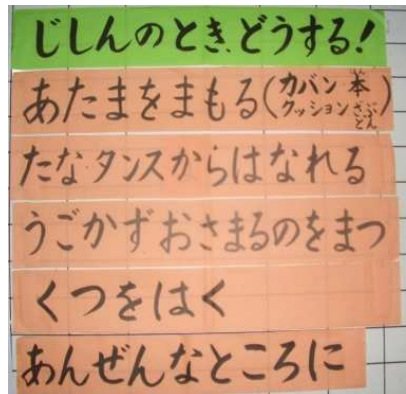 じしんのとき、どうする!
あたまをまもる(カバン 本 クッション ざぶとん)
たなタンスからはなれる
うごかずおさまるのをまつ
くつをはく
あんぜんなところに